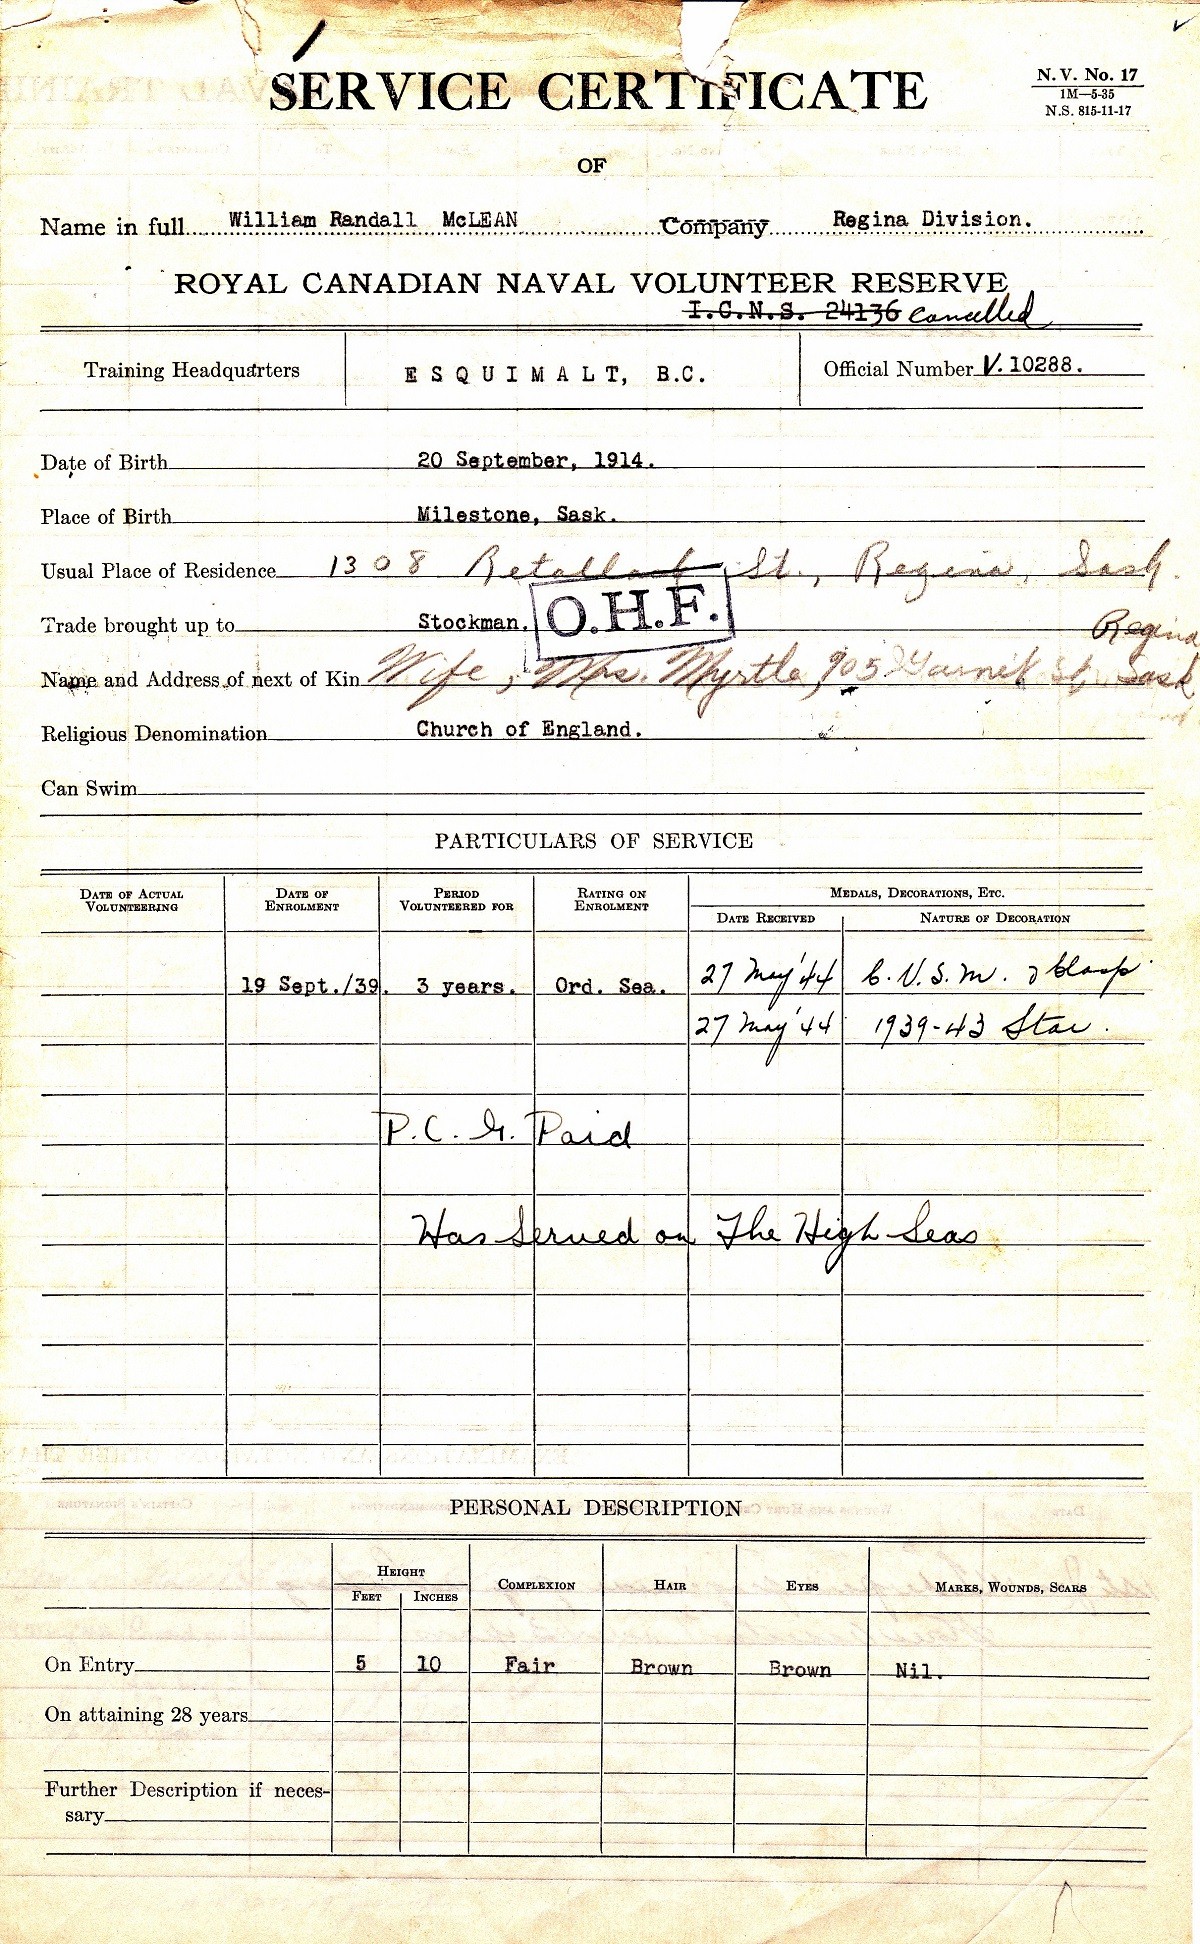 SERVICE CERTIFICATE
N. V. No. 17
1M—5-35
N.S. 815-11-17
OF
Name in full William Randall McLEAN Company Regina Division.
ROYAL CANADIAN NAVAL VOLUNTEER RESERVE
I.C.N.S. 24136 Cancelled
Training Headquarters ESQUIMALT, B.C. Official Number V. 10288.
Date of Birth 20 September, 1914.
Place of Birth Milestone, Sask.
Usual Place of Residence 1308 Retallack St., Regina, Sask.
Trade brought up to Stockman. O.H.F. Regina
Name and Address of next of Kin Wife, Mrs. Myrtle, 905 Garnet St, Sask
Religious Denomination Church of England.
Can Swim
PARTICULARS OF SERVICE
DATE OF ACTUAL VOLUNTEERING DATE OF ENROLMENT PERIOD VOLUNTEERED FOR RATING ON ENROLMENT MEDALS, DECORATIONS, ETC.
DATE RECEIVED NATURE OF DECORATION
19 Sept./39. 3 years. Ord. Sea. 27 May '44 C.V.S.M. & Clasp
27 May '44 1939-43 Star.
P.C. G. Paid
Has Served on The High Seas
PERSONAL DESCRIPTION
HEIGHT COMPLEXION HAIR EYES MARKS, WOUNDS, SCARS
FEET INCHES
On Entry 5 10 Fair Brown Brown Nil.
On attaining 28 years
Further Description if neces-
sary